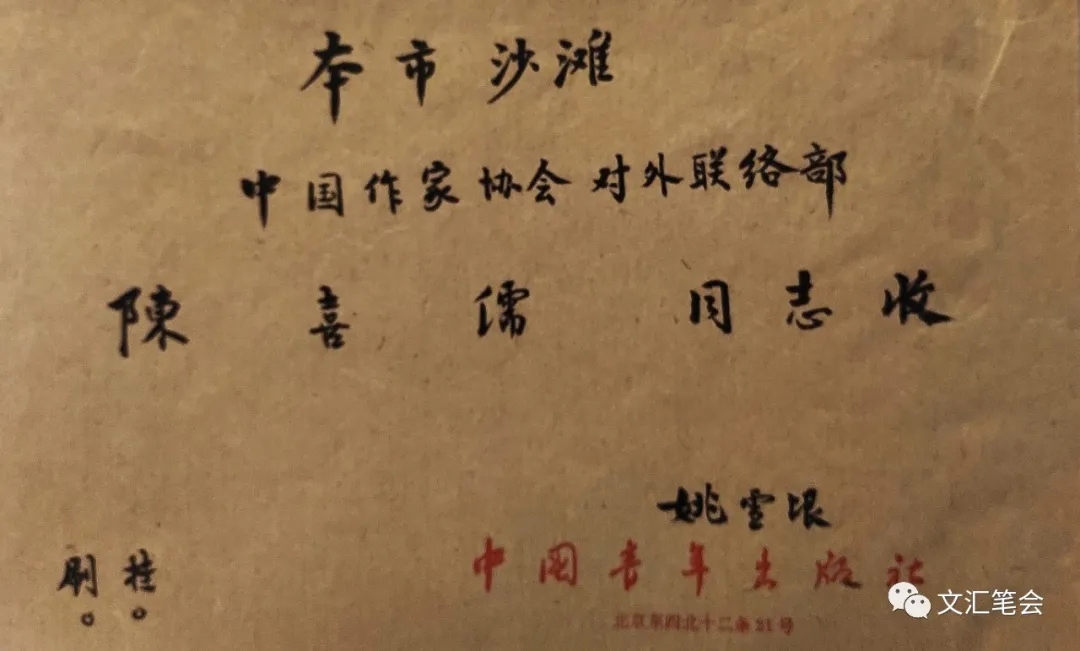 本市沙滩
中国作家协会对外联络部
陳喜儒 同志收
姚雪垠
刷挂
中国青年出版社
北京东四北十二条21号
文汇笔会